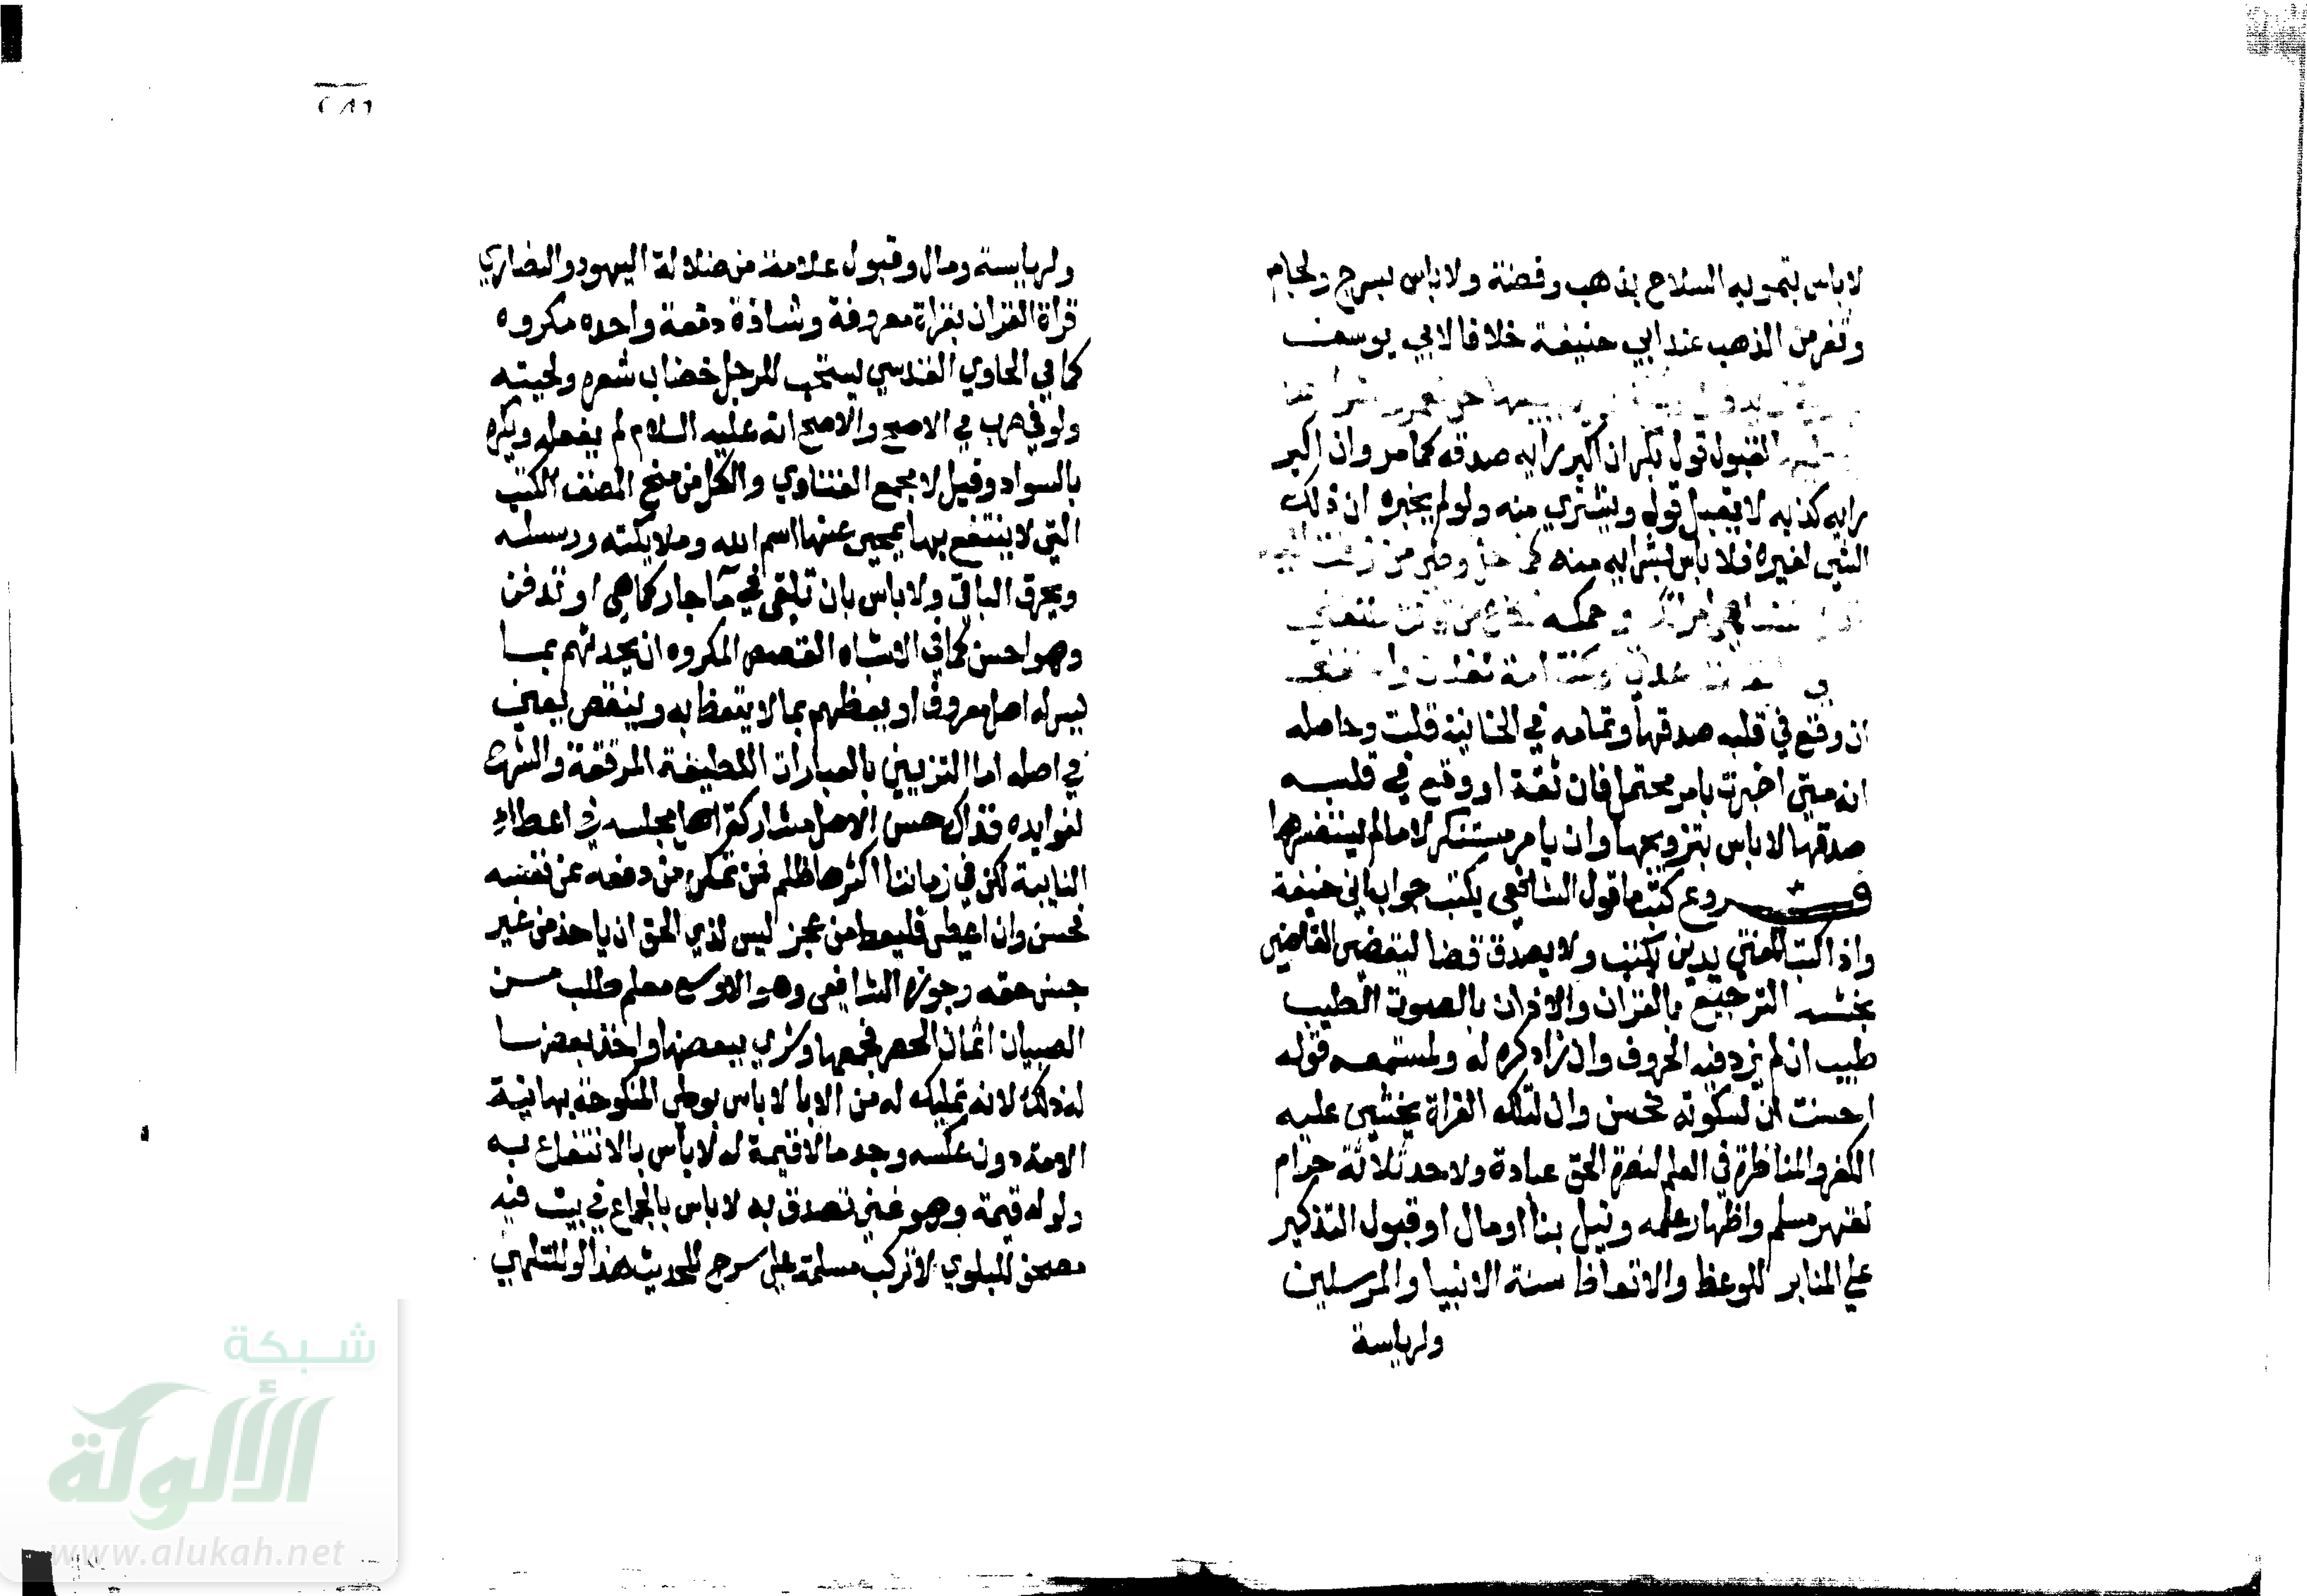 لاباس بتمويه السلاح بذهب وفضة ولاباس بسرج ولجام
وثفر من الذهب عند ابي حنيفة خلافا لابي يوسف
لقبول قول بكر ان اكبر رايه صدقه كما مر وان اكبر
رايه كذبه لا يقبل قوله ويشتري منه ولو لم يخبره ان ذلك
الشي لغيره فلا باس بشرايه منه كما حل وطي من زفت اليه
ان وقع في قلبه صدقها وتمامه في الخانية قلت وحاصله
انه متى اخبرت بامر محتمل فان ثقة او وقع في قلبه
صدقها لاباس بتزويجها وان بامر مستنكر لا مالم يستفسرها
فـــروع كتب ما قول الشافعي يكتب جواب ابي حنيفة
واذا كتب المفتي يدين يكتب ولا يصدق قضا ليقضي القاضي
بحنثه الترجيع بالقران والاذان بالصوت الطيب
طيب ان لم يزد فيه الحروف وان زاد كره له ولمستمعه قوله
احسنت ان لسكوته فحسن وان لتلك القراة يخشى عليه
الكفر والمناظرة في العلم لنصرة الحق عبادة ولاحد ثلاثة حرام
لقهر مسلم واظهار علمه ونيل دنيا او مال او قبول التذكير
على المنابر للوعظ والاتعاظ سنة الانبيا والمرسلين
ولرياسة
ولرياسة ومال وقبول علامة من ضلالة اليهود والنصاري
قراة القران بقراة معروفة وشاذة دفعة واحده مكروه
كما في الحاوي القدسي يستحب للرجل خضاب شعره ولحيته
ولو في حرب في الاصح والاصح انه عليه السلام لم يفعله ويكره
بالسواد وقيل لا مجمع الفتاوي والكل من منح المصنف الكتب
التي لا ينتفع بها يمحى عنها اسم الله وملايكته ورسله
ويحرق الباقي ولاباس بان تلقى في ما جار كما هي او تدفن
وهو احسن كما في الاشباه القصص المكروه ان يحدثهم بما
ليس له اصل معروف او يعظهم بما لا يتعظ به وينقص يعني
في اصله اما التزيين بالعبارات اللطيفة المرققة والشرح
لفوايده فذاك حسن الافضل مشاركة اهل مجلسه في اعطاء
النايبة لكن في زماننا اكثرها ظلم فمن تمكن من دفعه عن نفسه
فحسن وان اعطى فليعط من عجز ليس لذي الحق ان ياخذ من غير
جنس حقه وجوزه الشافعي وهو الاوسع معلم طلب من
الصبيان اثمان الحصر فجمعها وشري ببعضها واخذ بعضها
له ذلك لانه تمليك له من الابا لاباس بوطي المنكوحة بهانية
الامة دون عكسه وجد مالا قيمة له لاباس بالانتفاع به
ولو له قيمة وهو غني تصدق به لاباس بالجماع في بيت فيه
مصحف للبلوي لا تركب مسلمة على سرج للحديث هذا لو للتلهي
شبكة
الألوكة
www.alukah.net